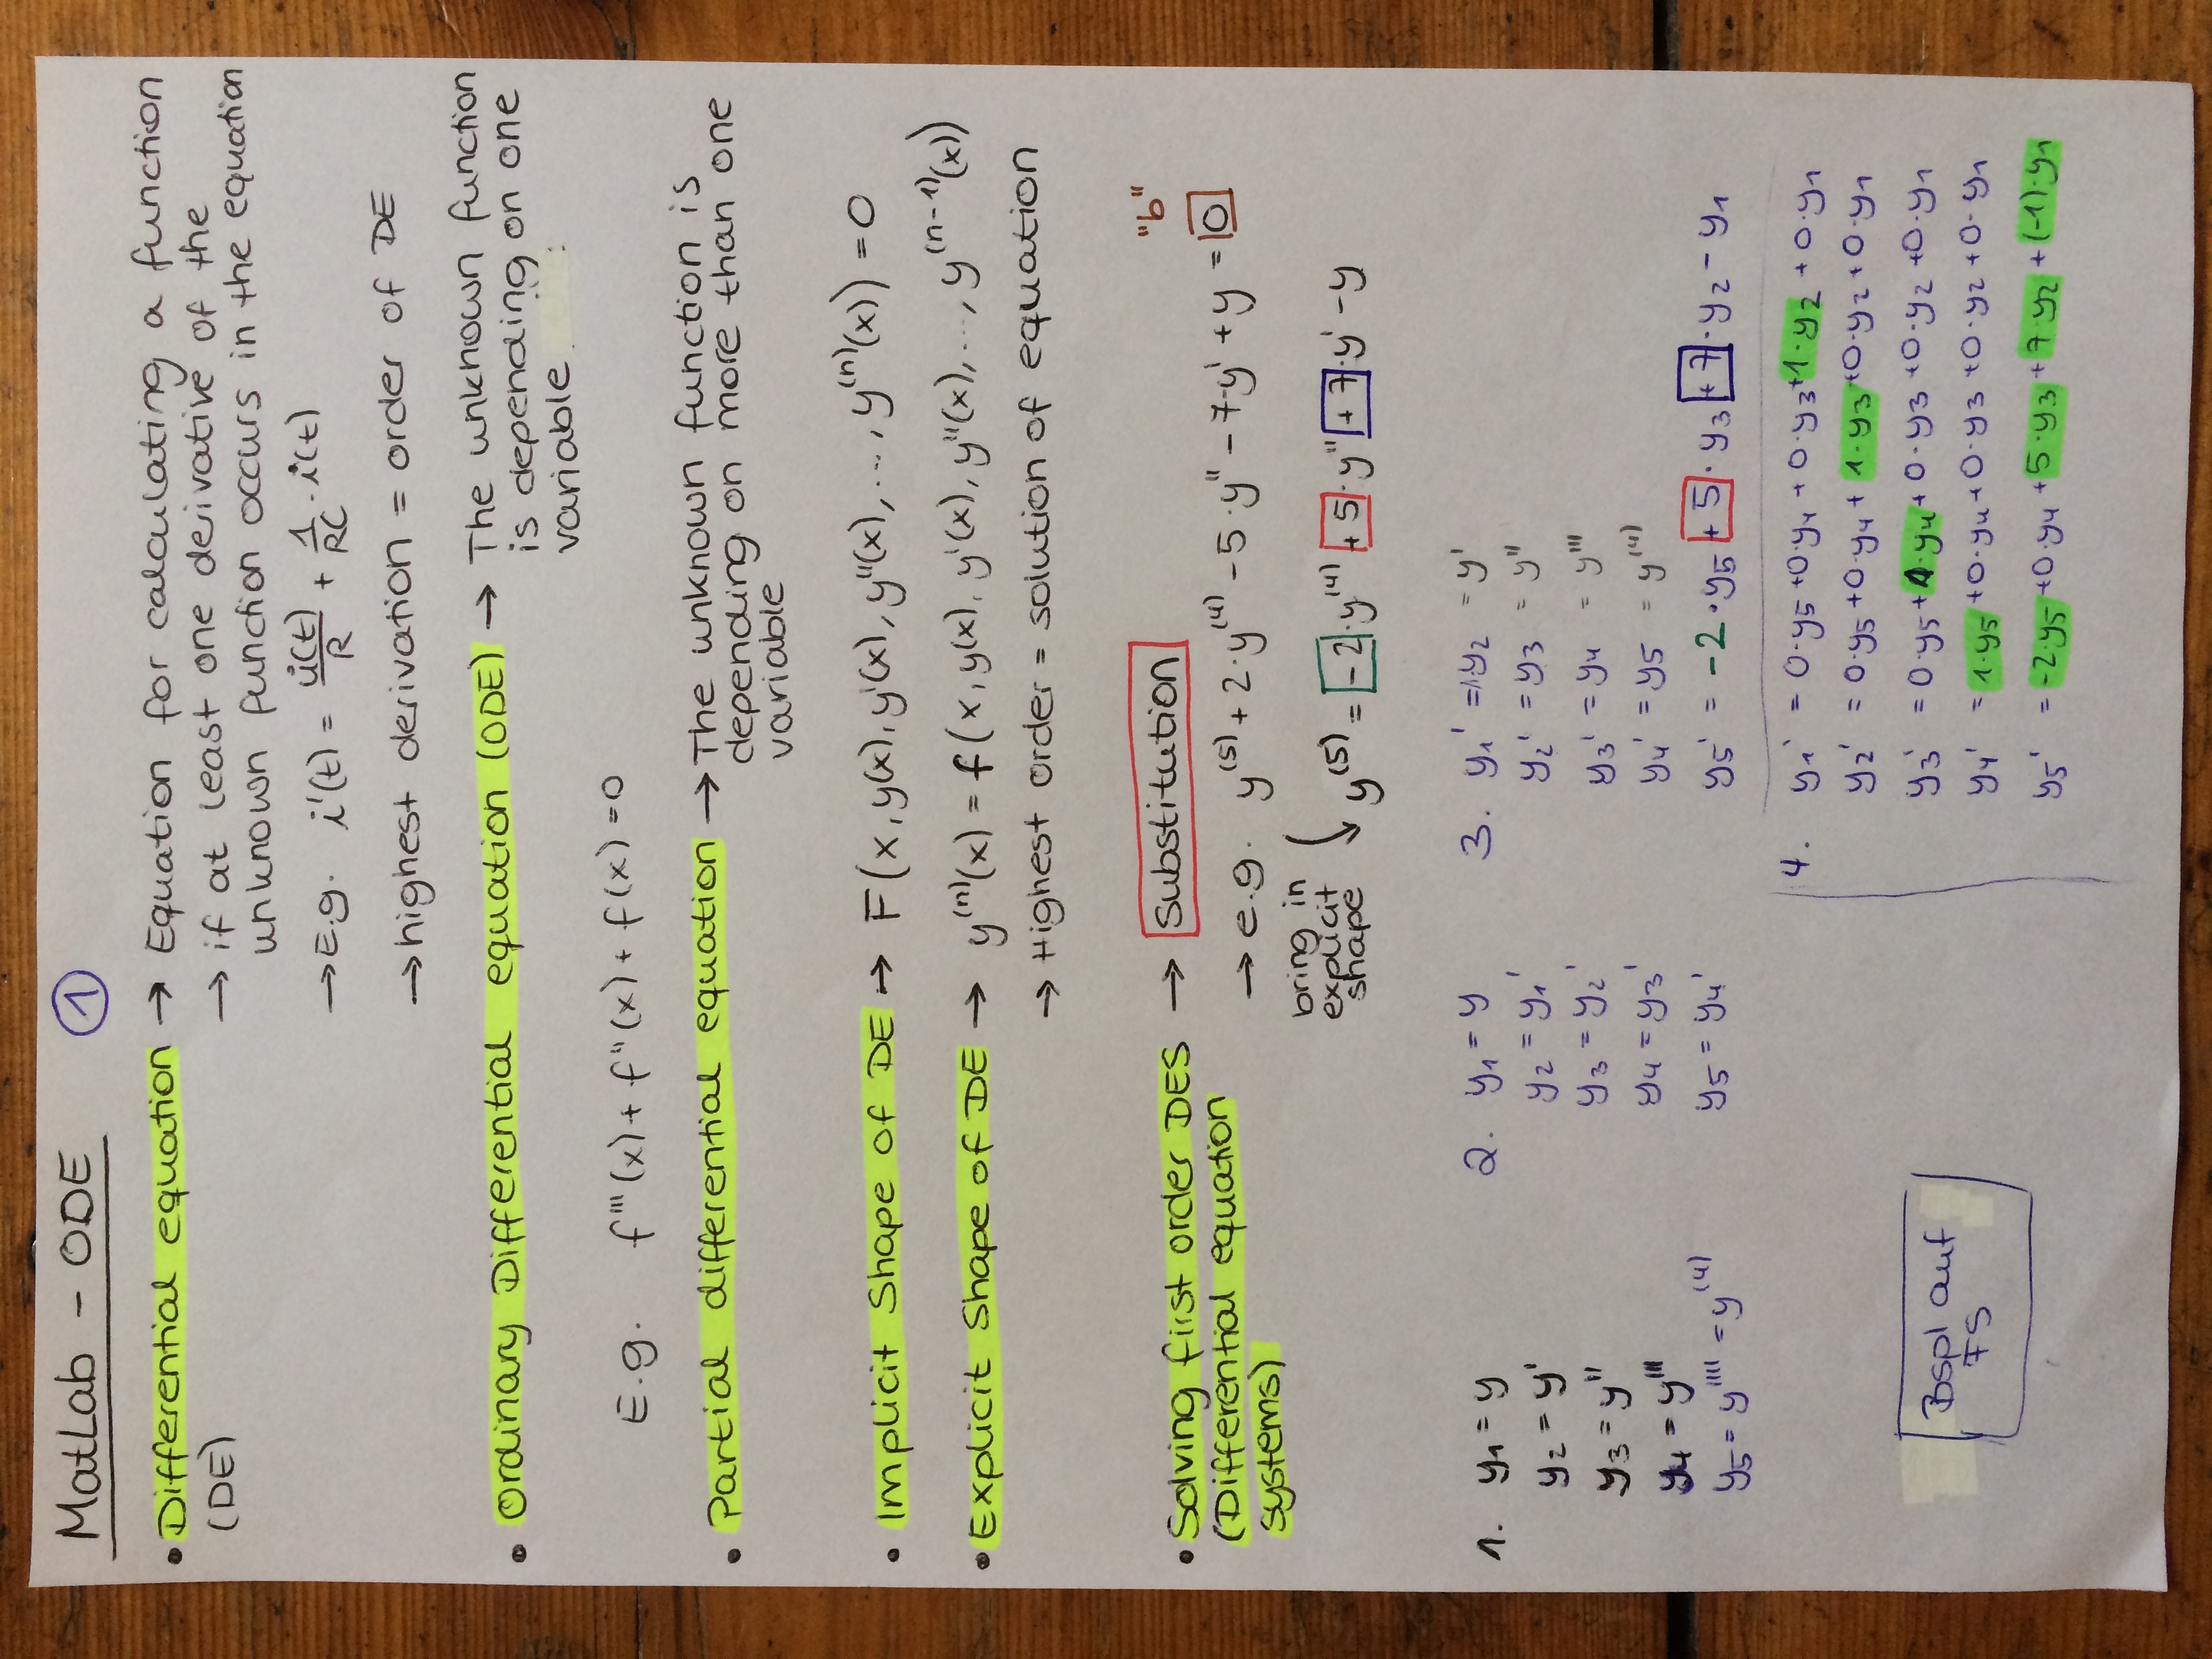 MatLab - ODE ①
• Differential equation → Equation for calculating a function
(DE) → if at least one derivative of the
unknown function occurs in the equation
→ E.g. i'(t) = u̇(t)/R + 1/RC · i(t)
→ highest derivation = order of DE
• Ordinary Differential equation (ODE) → The unknown function
is depending on one
variable :
E.g. f'''(x) + f''(x) + f(x) = 0
• Partial differential equation → The unknown function is
depending on more than one
variable
• Implicit Shape of DE → F(x, y(x), y'(x), y''(x), ..., y⁽ⁿ⁾(x)) = 0
• Explicit Shape of DE → y⁽ⁿ⁾(x) = f(x, y(x), y'(x), y''(x), ..., y⁽ⁿ⁻¹⁾(x))
→ Highest order = solution of equation
• Solving first order DES → substitution
"b"
(Differential equation → e.g. y⁽⁵⁾ + 2·y⁽⁴⁾ - 5·y'' - 7·y' + y = 0
systems)
bring in
explicit
shape y⁽⁵⁾ = -2·y⁽⁴⁾ +5·y'' +7·y' - y
1. y₁ = y
y₂ = y'
y₃ = y''
y₄ = y'''
y₅ = y'''' = y⁽⁴⁾
2. y₁ = y
y₂ = y₁'
y₃ = y₂'
y₄ = y₃'
y₅ = y₄'
3. y₁' = 1·y₂ = y'
y₂' = y₃ = y''
y₃' = y₄ = y'''
y₄' = y₅ = y⁽⁴⁾
y₅' = -2·y₅ +5·y₃ +7·y₂ - y₁
4. y₁' = 0·y₅ + 0·y₄ + 0·y₃ + 1·y₂ + 0·y₁
y₂' = 0·y₅ + 0·y₄ + 1·y₃ + 0·y₂ + 0·y₁
y₃' = 0·y₅ + 1·y₄ + 0·y₃ + 0·y₂ + 0·y₁
y₄' = 1·y₅ + 0·y₄ + 0·y₃ + 0·y₂ + 0·y₁
y₅' = -2·y₅ + 0·y₄ + 5·y₃ + 7·y₂ + (-1)·y₁
Bspl auf
FS